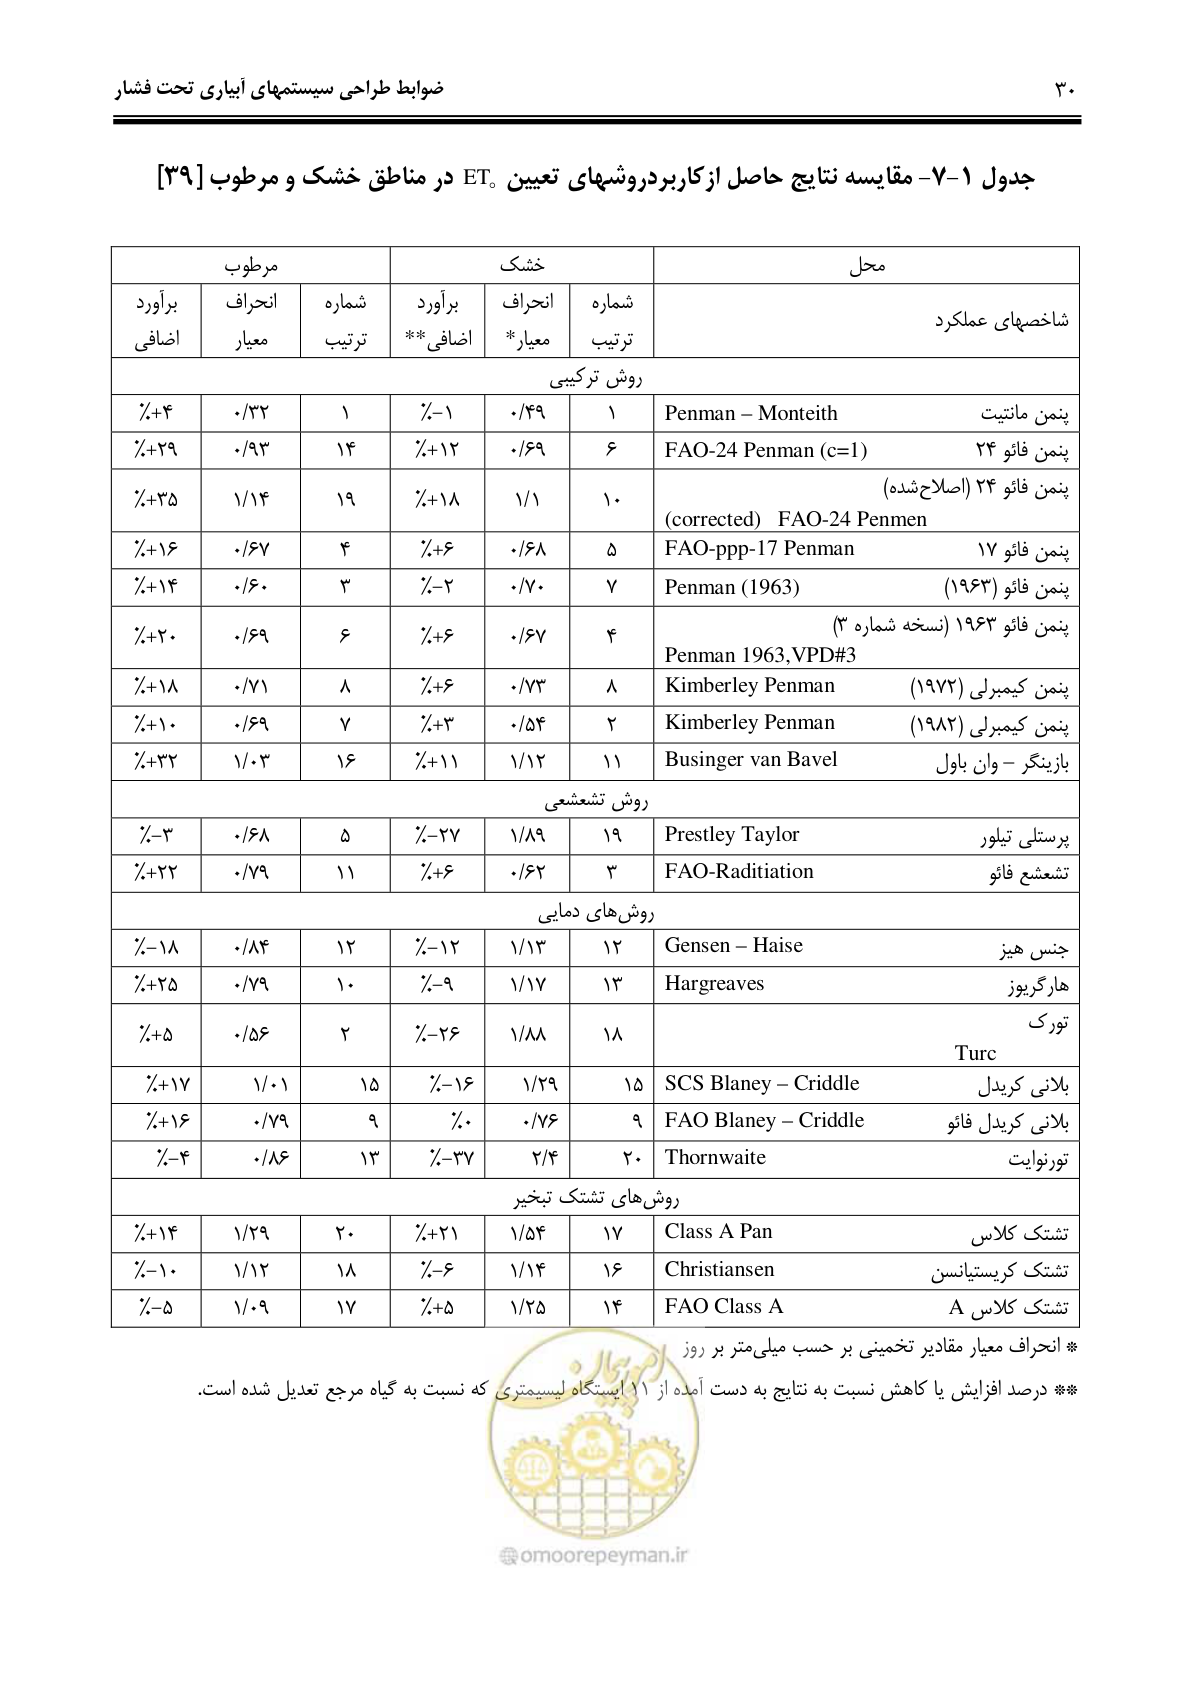 ۳۰ ضوابط طراحی سیستمهای آبیاری تحت فشار
جدول ۱-۷- مقایسه نتایج حاصل ازکاربردروشهای تعیین ET₀ در مناطق خشک و مرطوب [۳۹]
محل خشک مرطوب
شاخصهای عملکرد شماره ترتیب انحراف معیار* برآورد اضافی** شماره ترتیب انحراف معیار برآورد اضافی
روش ترکیبی
پنمن مانتیت Penman – Monteith ۱ ۰/۴۹ ٪-۱ ۱ ۰/۳۲ ٪+۴
پنمن فائو ۲۴ FAO-24 Penman (c=1) ۶ ۰/۶۹ ٪+۱۲ ۱۴ ۰/۹۳ ٪+۲۹
پنمن فائو ۲۴ (اصلاح‌شده)
(corrected) FAO-24 Penmen ۱۰ ۱/۱ ٪+۱۸ ۱۹ ۱/۱۴ ٪+۳۵
پنمن فائو ۱۷ FAO-ppp-17 Penman ۵ ۰/۶۸ ٪+۶ ۴ ۰/۶۷ ٪+۱۶
پنمن فائو (۱۹۶۳) Penman (1963) ۷ ۰/۷۰ ٪-۲ ۳ ۰/۶۰ ٪+۱۴
پنمن فائو ۱۹۶۳ (نسخه شماره ۳)
Penman 1963,VPD#3 ۴ ۰/۶۷ ٪+۶ ۶ ۰/۶۹ ٪+۲۰
پنمن کیمبرلی (۱۹۷۲) Kimberley Penman ۸ ۰/۷۳ ٪+۶ ۸ ۰/۷۱ ٪+۱۸
پنمن کیمبرلی (۱۹۸۲) Kimberley Penman ۲ ۰/۵۴ ٪+۳ ۷ ۰/۶۹ ٪+۱۰
بازینگر – وان باول Businger van Bavel ۱۱ ۱/۱۲ ٪+۱۱ ۱۶ ۱/۰۳ ٪+۳۲
روش تشعشعی
پرستلی تیلور Prestley Taylor ۱۹ ۱/۸۹ ٪-۲۷ ۵ ۰/۶۸ ٪-۳
تشعشع فائو FAO-Raditiation ۳ ۰/۶۲ ٪+۶ ۱۱ ۰/۷۹ ٪+۲۲
روش‌های دمایی
جنس هیز Gensen – Haise ۱۲ ۱/۱۳ ٪-۱۲ ۱۲ ۰/۸۴ ٪-۱۸
هارگریوز Hargreaves ۱۳ ۱/۱۷ ٪-۹ ۱۰ ۰/۷۹ ٪+۲۵
تورک
Turc ۱۸ ۱/۸۸ ٪-۲۶ ۲ ۰/۵۶ ٪+۵
بلانی کریدل SCS Blaney – Criddle ۱۵ ۱/۲۹ ٪-۱۶ ۱۵ ۱/۰۱ ٪+۱۷
بلانی کریدل فائو FAO Blaney – Criddle ۹ ۰/۷۶ ٪۰ ۹ ۰/۷۹ ٪+۱۶
تورنوایت Thornwaite ۲۰ ۲/۴ ٪-۳۷ ۱۳ ۰/۸۶ ٪-۴
روش‌های تشتک تبخیر
تشتک کلاس Class A Pan ۱۷ ۱/۵۴ ٪+۲۱ ۲۰ ۱/۲۹ ٪+۱۴
تشتک کریستیانسن Christiansen ۱۶ ۱/۱۴ ٪-۶ ۱۸ ۱/۱۲ ٪-۱۰
تشتک کلاس A FAO Class A ۱۴ ۱/۲۵ ٪+۵ ۱۷ ۱/۰۹ ٪-۵
* انحراف معیار مقادیر تخمینی بر حسب میلی‌متر بر روز
** درصد افزایش یا کاهش نسبت به نتایج به دست آمده از ۱۱ ایستگاه لیسیمتری که نسبت به گیاه مرجع تعدیل شده است.
امور پیمان
@omoorepeyman.ir